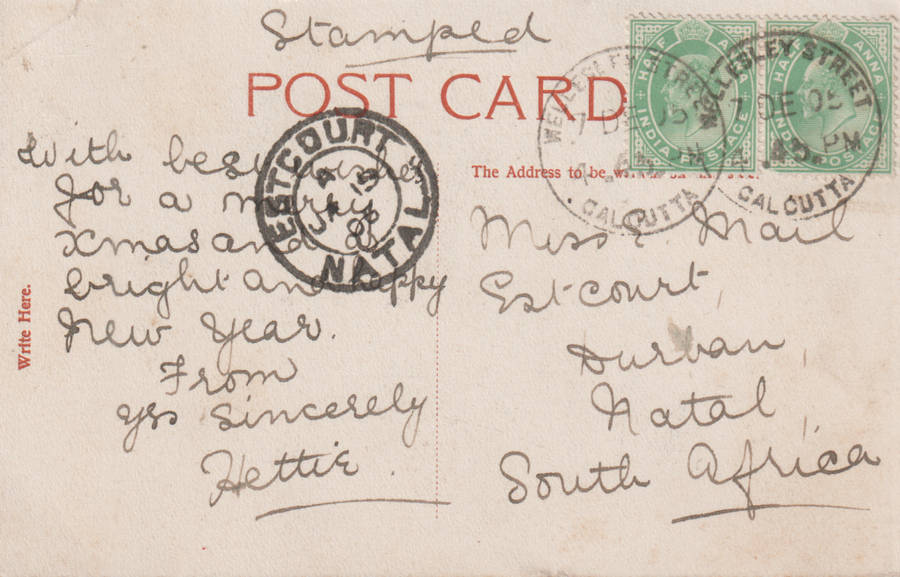 Stamped
POST CARD
HALF ANNA
INDIA POSTAGE
HALF ANNA
INDIA POSTAGE
WELLESLEY STREET
7 DE 05
CALCUTTA
WELLESLEY STREET
7 DE 05
PM
CALCUTTA
ESTCOURT
A
JA 15
06
NATAL
The Address to be
With best wishes
for a merry
Xmas and a
bright and happy
New Year.
From
Yrs Sincerely
Hettie.
Write Here.
Miss E. Mail
Estcourt,
Durban,
Natal,
South Africa